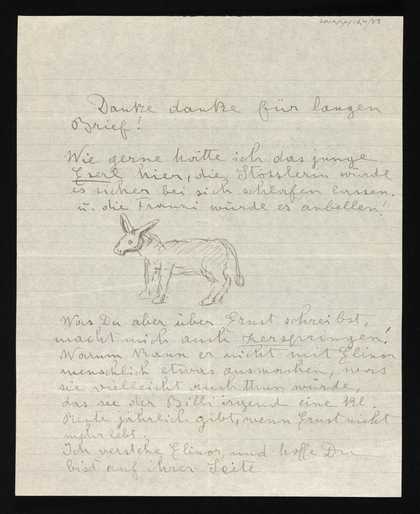 Danke danke für langen
Brief!
Wie gerne hätte ich das junge
Eserl hier, die Stösslerin würde
es sicher bei sich schlafen lassen.
u. die Franzi würde es anbellen!
Was Du aber über Ernst schreibst,
macht mich auch zerspringen!
Warum kann er nicht mit Elinor
menschlich etwas ausmachen, was
sie vielleicht auch thun würde,
das sie der Billi irgend eine kl.
Rente jährlich gibt, wenn Ernst nicht
mehr lebt.
Ich verstehe Elinor, und hoffe Du
bist auf ihrer Seite